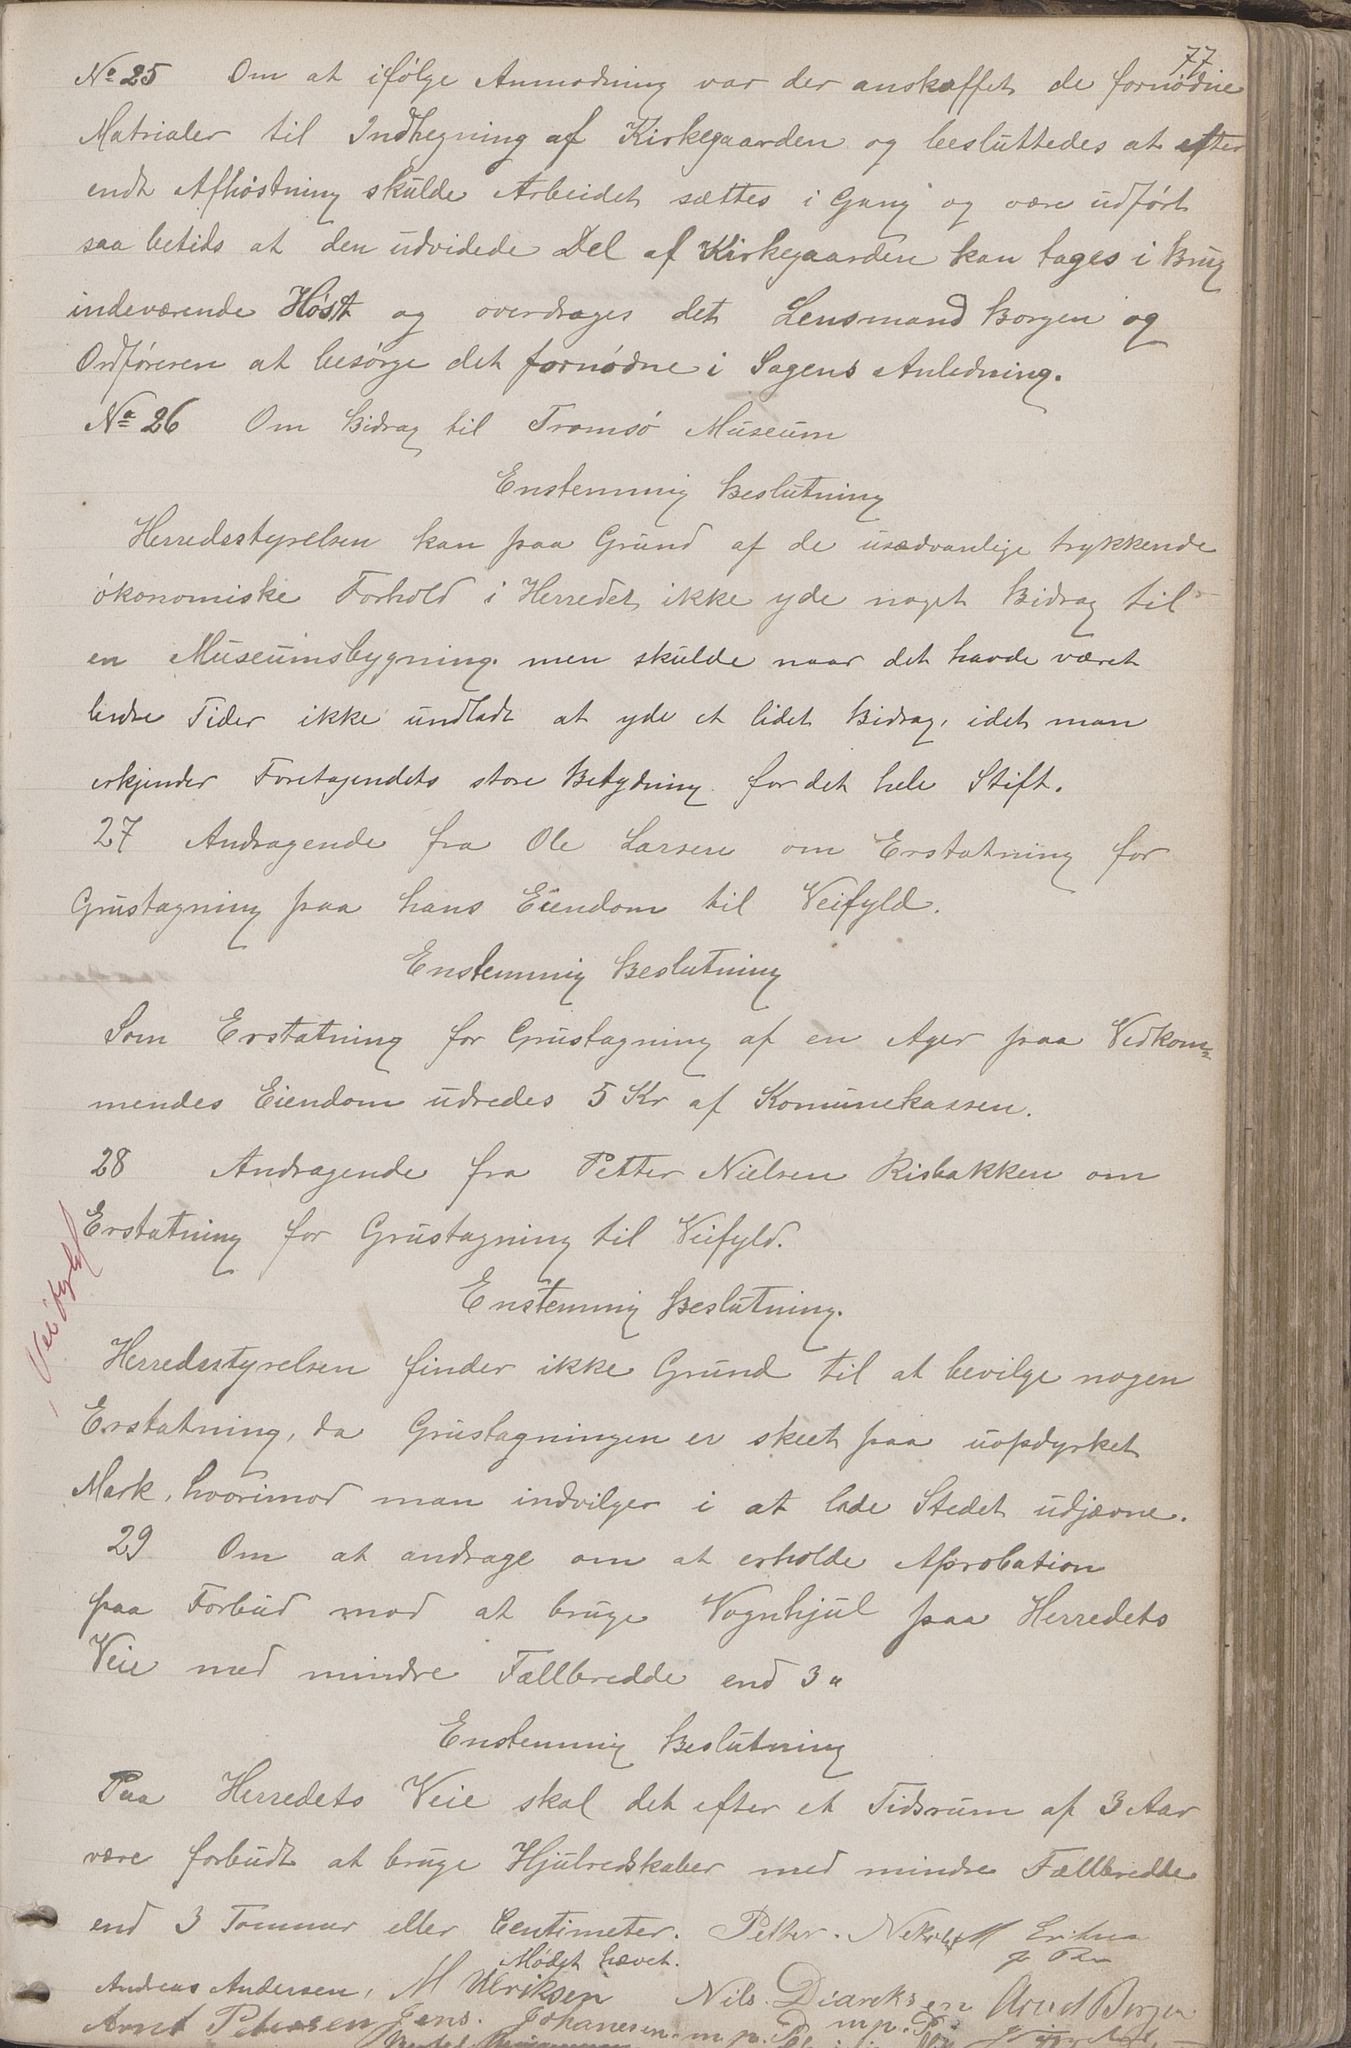 77
No 25 Om at ifølge Anmodning var der anskaffet de fornødne
Matrialer til Indhegning af Kirkegaarden og besluttedes at efter
endt Afhøstning skulde Arbeidet sættes i Gang og være udført
saa betids at den udvidede Del af Kirkegaarden kan tages i Brug
indeværende Høst og overdrages det Lensmand Borgen og
Ordføreren at besørge det fornødne i Sagens Anledning.
No 26 Om Bidrag til Tromsø Museum
Enstemmig Beslutning
Herredsstyrelsen kan paa Grund af de usædvanlige trykkende
økonomiske Forhold i Herredet ikke yde noget Bidrag til
en Museumsbygning. men skulde naar det havde været
bedre Tider ikke undladt at yde et lidet Bidrag, idet man
erkjender Foretagendets store Betydning for det hele Stift.
27 Andragende fra Ole Larsen om Erstatning for
Grustagning paa hans Eiendom til Veifyld.
Enstemmig Beslutning
Som Erstatning for Grustagning af en Ager paa Vedkom=
mendes Eiendom udredes 5 Kr af Komunekassen.
28 Andragende fra Petter Nielsen Risbakken om
Erstatning for Grustagning til Veifyld.
Veifyld
Enstemmig Beslutning.
Herredsstyrelsen finder ikke Grund til at bevilge nogen
Erstatning, da Grustagningen er skeet paa uopdyrket
Mark, hvorimod man indvilger i at lade Stedet udjævne.
29 Om at andrage om at erholde Aprobation
paa Forbud mod at bruge Vognhjul paa Herredets
Veie med mindre Fællbredde end 3"
Enstemmig Beslutning
Paa Herredets Veie skal det efter et Tidsrum af 3 Aar
være forbudt at bruge Hjulredskaber med mindre Fællbredde
end 3 Tommer eller Centimeter. Petter
Mødet hævet.
Andreas Andersen, M Ulriksen Nils Diareksen Arnt Borgen
Arnt Petersen Jens Johanesen m.p.P. m.p.P.